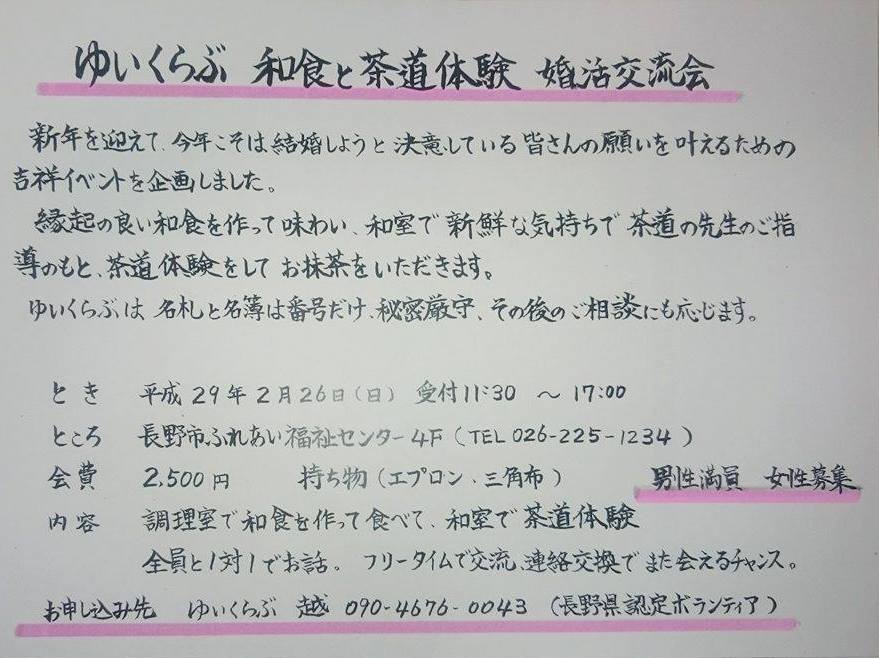 ゆいくらぶ 和食と茶道体験 婚活交流会
新年を迎えて、今年こそは結婚しようと決意している皆さんの願いを叶えるための
吉祥イベントを企画しました。
縁起の良い和食を作って味わい、和室で新鮮な気持ちで茶道の先生のご指
導のもと、茶道体験をしてお抹茶をいただきます。
ゆいくらぶは名札と名簿は番号だけ、秘密厳守、その後のご相談にも応じます。
とき 平成29年2月26日(日) 受付11:30 〜 17:00
ところ 長野市ふれあい福祉センター4F(TEL 026-225-1234)
会費 2,500円 持ち物(エプロン、三角布) 男性満員 女性募集
内容 調理室で和食を作って食べて、和室で茶道体験
全員と1対1でお話。 フリータイムで交流、連絡交換でまた会えるチャンス。
お申し込み先 ゆいくらぶ 越 090-4676-0043 (長野県認定ボランティア)